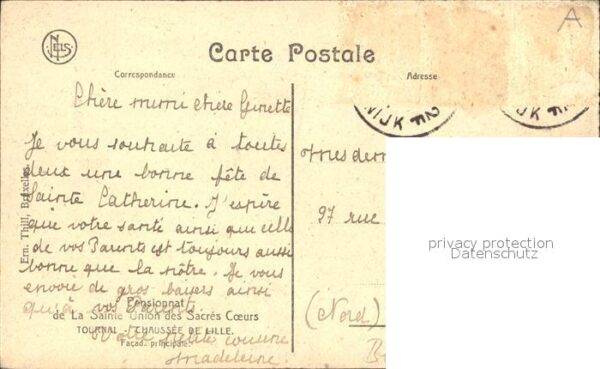 A
NELS
Carte Postale
Correspondance
Adresse
IJK
Chère mimi chère Ginette
Je vous souhaite à toutes
deux une bonne fête de
Sainte Catherine. J'espère
que votre santé ainsi que celle
de vos Parents est toujours aussi
bonne que la nôtre. Je vous
envoie de gros baisers ainsi
qu'à vos Parents.
Votre petite cousine
Madeleine.
Ern. Thill, Bruxelles.
Pensionnat
de La Sainte Union des Sacrés Cœurs
TOURNAI - CHAUSSÉE DE LILLE.
Façade principale.
97 rue
(Nord)
privacy protection
Datenschutz